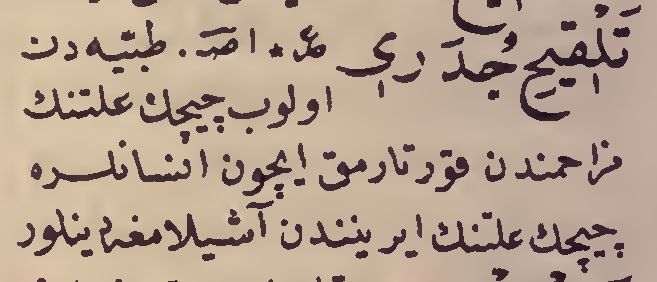 تَلْقِيحِ جُدَرِي ع٠ اصـ. طبّيه دن
اولوب چيچك علتنك
مزاحمندن قورتارمق ايچون انسانلره
چيچك علتنك ايرينندن آشيلامغه دينلور